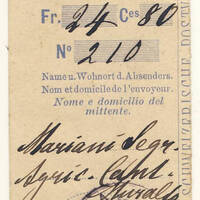 Fr. 24 Ces 80
No 210
Name u. Wohnort d. Absenders.
Nom et domicile de l'envoyeur.
Nome e domicilio del
mittente.
Mariani Segr.
Agric. Cant.
SCHWEIZERISCHE POSTV